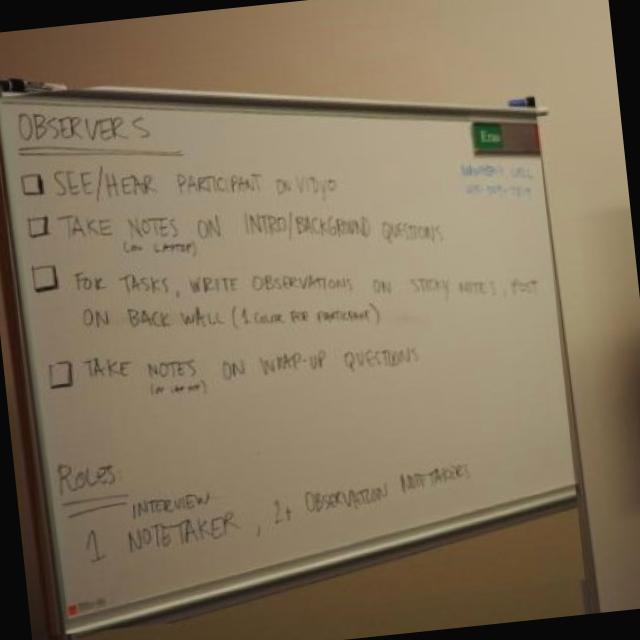 OBSERVERS
SEE/HEAR PARTICIPANT ON VIDYO
TAKE NOTES ON INTRO/BACKGROUND QUESTIONS
(ON LAPTOP)
FOR TASKS, WRITE OBSERVATIONS ON STICKY NOTES, POST
ON BACK WALL (1 COLOR PER PARTICIPANT)
TAKE NOTES ON WRAP-UP QUESTIONS
(ON LAPTOP)
ROLES:
INTERVIEW
1 NOTETAKER, 2+ OBSERVATION NOTETAKERS